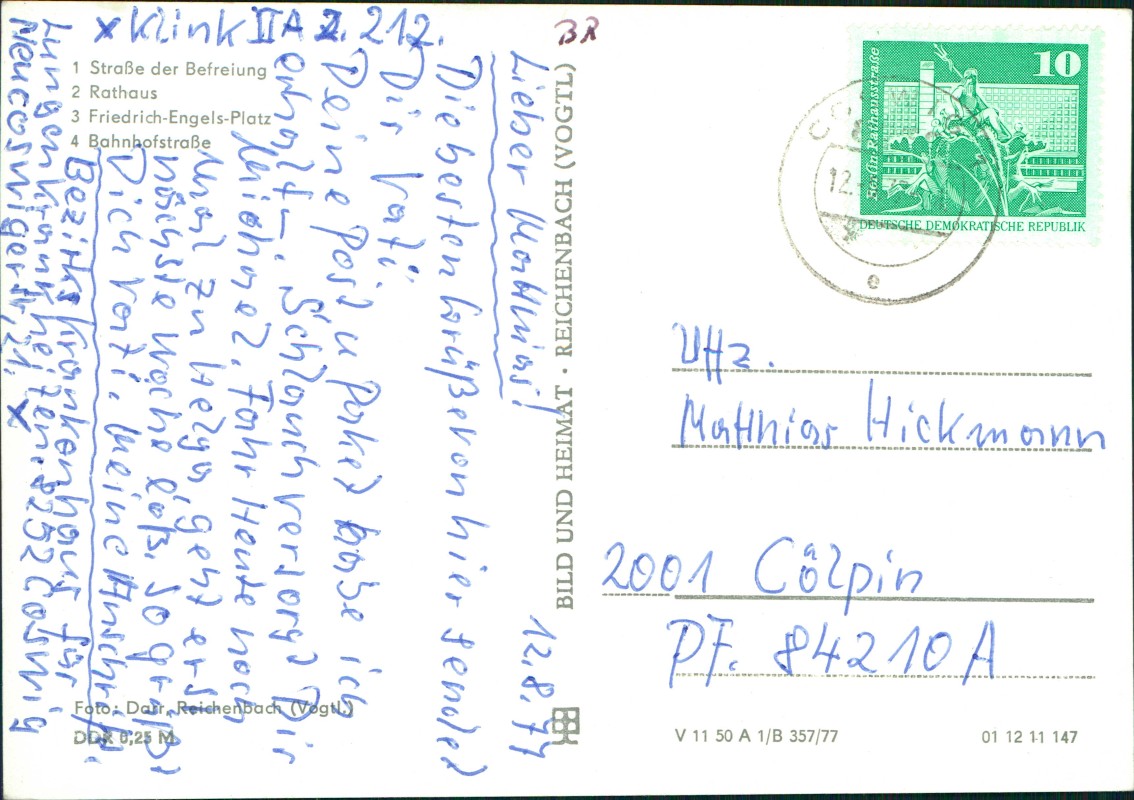 x Klink II A Z. 212.
1 Straße der Befreiung
2 Rathaus
3 Friedrich-Engels-Platz
4 Bahnhofstraße
12.8.77
Lieber Matthias!
Die besten Grüße von hier sendet
Dir Vati.
Deine Post u Paket habe ich
erhalt. Schlauch versorgt Dir
Michael. Fahr Heute noch
mal zu Helga, geht erst
nächste Woche los. So grüßt
Dich Vati. Meine Anschrift.
Bezirkskrankenhaus für
Lungenkrankheiten. 8252 Coswig
Neucoswigerstr. 21. x
Foto: Darr, Reichenbach (Vogtl.)
DDR 0,25 M
BILD UND HEIMAT · REICHENBACH (VOGTL)
BR
10
Berlin-Rathausstraße
DEUTSCHE DEMOKRATISCHE REPUBLIK
12.
e
Uffz.
Matthias Hickmann
2001 Cölpin
PF. 84210 A
V 11 50 A 1/B 357/77
01 12 11 147